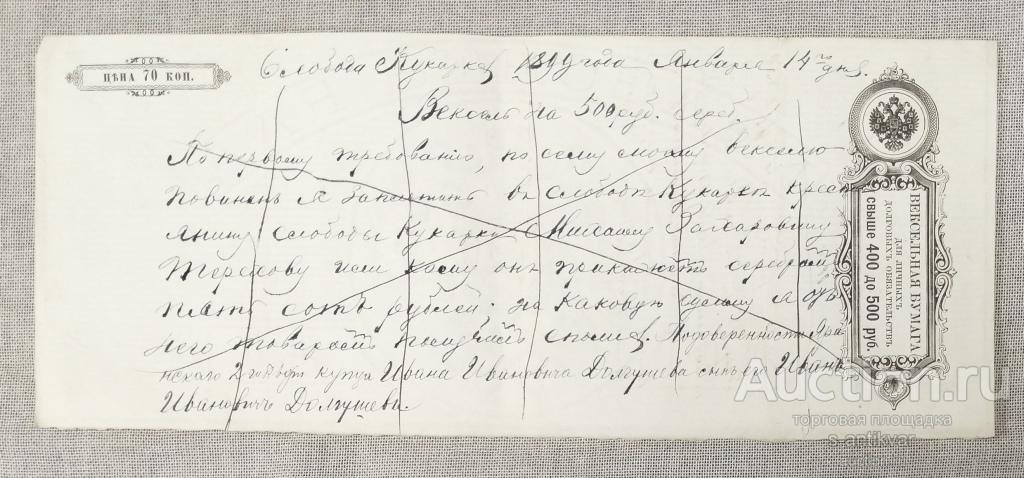 ЦѢНА 70 КОП.
Слобода Кукарка, 1899 года Января 14го дня.
Вексель на 500 руб. сереб.
По первому требованію, по сему моему векселю
повиненъ я заплатить въ слободѣ Кукаркѣ крест
янину слободы Кукарки Михаилу Захаровичу
Терехову или кому онъ прикажетъ серебромъ
пять сотъ рублей; на каковую сумму я отъ
него товаромъ получилъ сполна. По доверенности Яра
нскаго 2 гильдіи купца Ивана Ивановича Долгушева сынъ его Иванъ
Ивановичъ Долгушевъ.
ВЕКСЕЛЬНАЯ БУМАГА
ДЛЯ ЛИЧНЫХЪ
ДОЛГОВЫХЪ ОБЯЗАТЕЛЬСТВЪ
свыше 400 до 500 руб.
Auction.ru
торговая площадка
s.antikvar